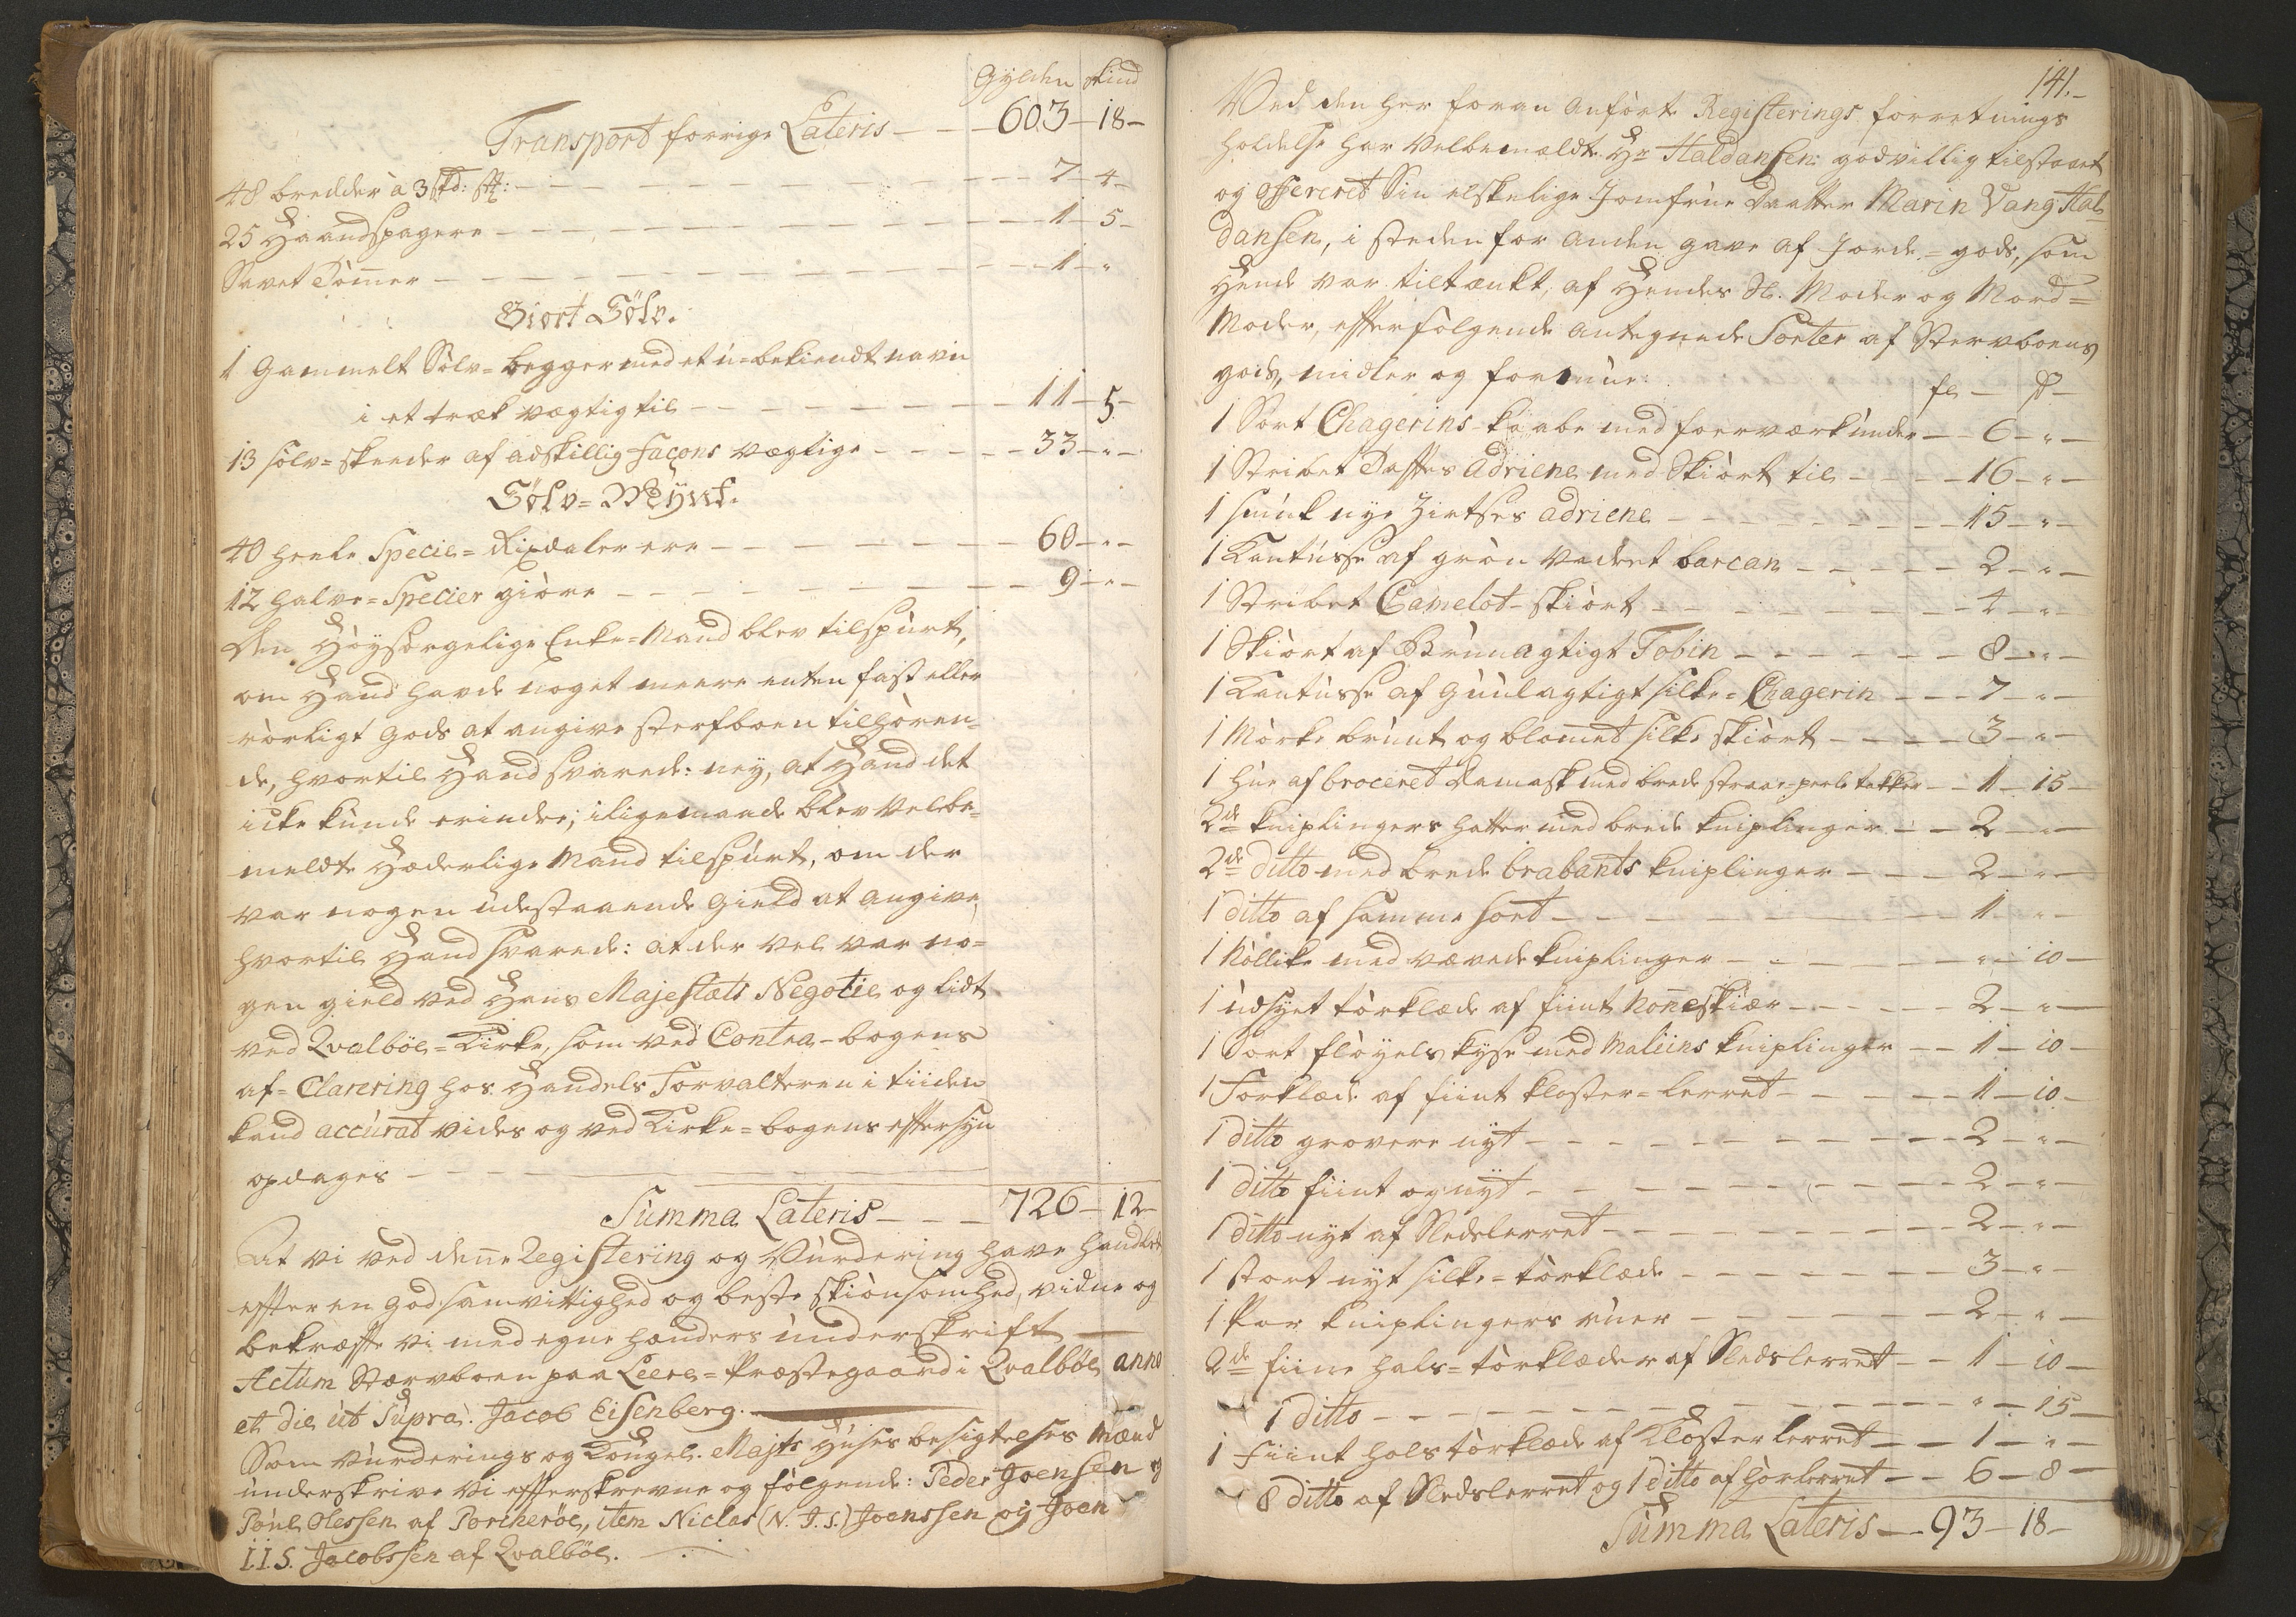 Gylden Skind
Transport forrige Lateris — — 603 — 18 —
48 bredder à 3 skd: st: — — — 7 — 4 —
25 Haandspagere — — — 1 — 5 —
Savet Tömer — — — 1 — "
Giort Sölv.
1 Gammelt Sölv=begger med et u=bekiendt navn
i et træk vægtig til — — — 11 — 5 —
13 sölv=skeeder af adskillig façons vægtige — — — 33 — " —
Sölv=Mÿnt.
40 heele Specie=Rixdaler ere — — — 60 — " —
12 halve=Specier giöre — — — 9 — " —
Den Höysorgelige Enke=Mand blev tilspurt,
om Hand havde noget meere enten fast eller
rörligt gods at angive sterfboen tilhören=
de, hvortil Hand svarede: ney, at Hand det
icke kunde erindre; iligemaade blev velbe=
meldte Hæderlige Mand tilspurt, om der
var nogen udestaaende gield at angive,
hvortil Hand svarede: at der vel var no=
gen gield ved Hans Majestæts Negotie og lidt
ved Qvalböe=Kirke, som ved Contra=bogens
af=Clarering hos Handels Forvalteren i tiiden
kand accurat vides og ved Kirke=bogens eftersyn
opdages — — —
Summa Lateris — — — 726 — 12 —
At vi ved denne Registering og Vurdering have handlet
efter en god samvittighed og beste skiönsomhed, vidne og
bekræfte vi med egne hænders underskrift —
Actum Stervboen paa Leere=Præstegaard i Qvalböe, anno
et die ut Supra. Jacob Eisenberg.
Som Vurderings og Kongel. Majts Huses besigtelses Mænd
underskrive vi efterskrevne og fölgende: Peder Joensen og
Poul Olessen af Porcheröe, item Niclas (N. J. S.) Joenssen og Joen
I. I. S. Jacobssen af Qvalböe.
141. —
Ved den her foran anförte Registerings forretnings
holdelse har Velbemældte Hr Haldansen godvillig tilstaaet
og offereret Sin elskelige Jomfrue Daatter Marin Vang Hal
dansen, i steden for anden gave af Jorde=gods, som
Hende var tiltænkt, af Hendes Sl. Moder og Mord=
Moder, efterfölgende antegnede Sorter af Stervboens
gods, midler og formue: fl — s —
1 Sort Chagerins=kaabe med foerværk under — 6 — " —
1 Stribet Taftes Adriene med Skiört til — 16 — " —
1 smuk nye Zirtses adriene — 15 — " —
1 Kantusse af grön vadret barcan — 2 — " —
1 Stribet Camelot=skiört — 4 — " —
1 Skiört af Brunagtigt Tobin — 8 — " —
1 Kantusse af Guulagtigt silke=Chagerin — 7 — " —
1 Mörke brunt og blomet silke skiört — 3 — " —
1 hue af broceret Damask med brede straae=perle takker — 1 — 15 —
2de kniplingers hatter med brede kniplinger — 2 — " —
2de ditto med brede brabants kniplinger — 2 — " —
1 ditto af samme sort — 1 — " —
1 Nöllike med vævede kniplinger — " — 10 —
1 udsyet törklæde af fiint Noneskiær — 2 — " —
1 Sort flöyels kyse med Maliins kniplinger — 1 — 10 —
1 Forklæde af fiint kloster=lerret — 1 — 10 —
1 ditto grovere nÿt — 2 — " —
1 ditto fiint og nÿt — 2 — " —
1 ditto nyt af Sledslerret — 2 — " —
1 stort nyt silke=törklæde — 3 — " —
1 Par kniplingers ruer — 2 — " —
2de fiine hals=törklæder af Sledslerret — 1 — 10 —
1 ditto — " — 15 —
1 Fiint hals törklæde af Klosterlerret — 1 — " —
8 ditto af Sledslerret og 1 ditto af hörlerret — 6 — 8 —
Summa Lateris — 93 — 18 —